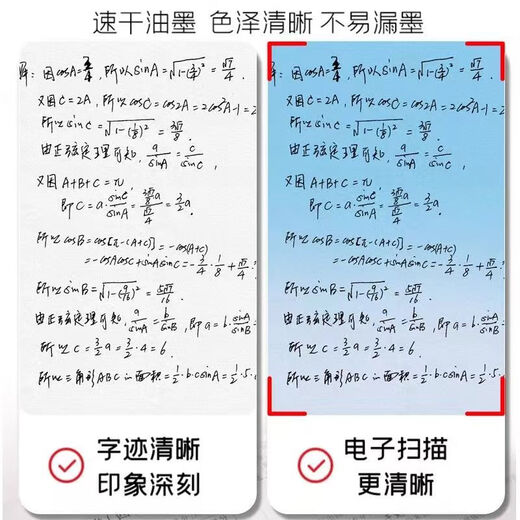 速干油墨 色泽清晰 不易漏墨
解：因cosA=3/4，所以sinA=√1-(3/4)²=√7/4.
又因C=2A，所以cosC=cos2A=2cos²A-1=2
所以sinC=√1-(1/8)²=3√7/8.
由正弦定理可知，a/sinA=c/sinC，
又因A+B+C=π
即C=a·sinC/sinA=(3√7/8 a)/(√7/4)=3/2a.
所以cosB=cos[π-(A+C)]=-cos(A+C)
=-cosAcosC+sinAsinC=-3/4·1/8+√7/4·
所以sinB=√1-(9/16)²=5√7/16.
由正弦定理可知，a/sinA=b/sinB，
所以c=3/2a=3/2·4=6.
所以三角形ABC的面积=1/2·b·csinA=1/2·5·
解：因cosA=3/4，所以sinA=√1-(3/4)²=√7/4.
又因C=2A，所以cosC=cos2A=2cos²A-1=2
所以sinC=√1-(1/8)²=3√7/8.
由正弦定理可知，a/sinA=c/sinC，
又因A+B+C=π
即C=a·sinC/sinA=(3√7/8 a)/(√7/4)=3/2a.
所以cosB=cos[π-(A+C)]=-cos(A+C)
=-cosAcosC+sinAsinC=-3/4·1/8+√7/4·
所以sinB=√1-(9/16)²=5√7/16.
由正弦定理可知，a/sinA=b/sinB，即a=b·sinA/sinB=
所以c=3/2a=3/2·4=6.
所以三角形ABC的面积=1/2·b·csinA=1/2·5·
字迹清晰
印象深刻
电子扫描
更清晰